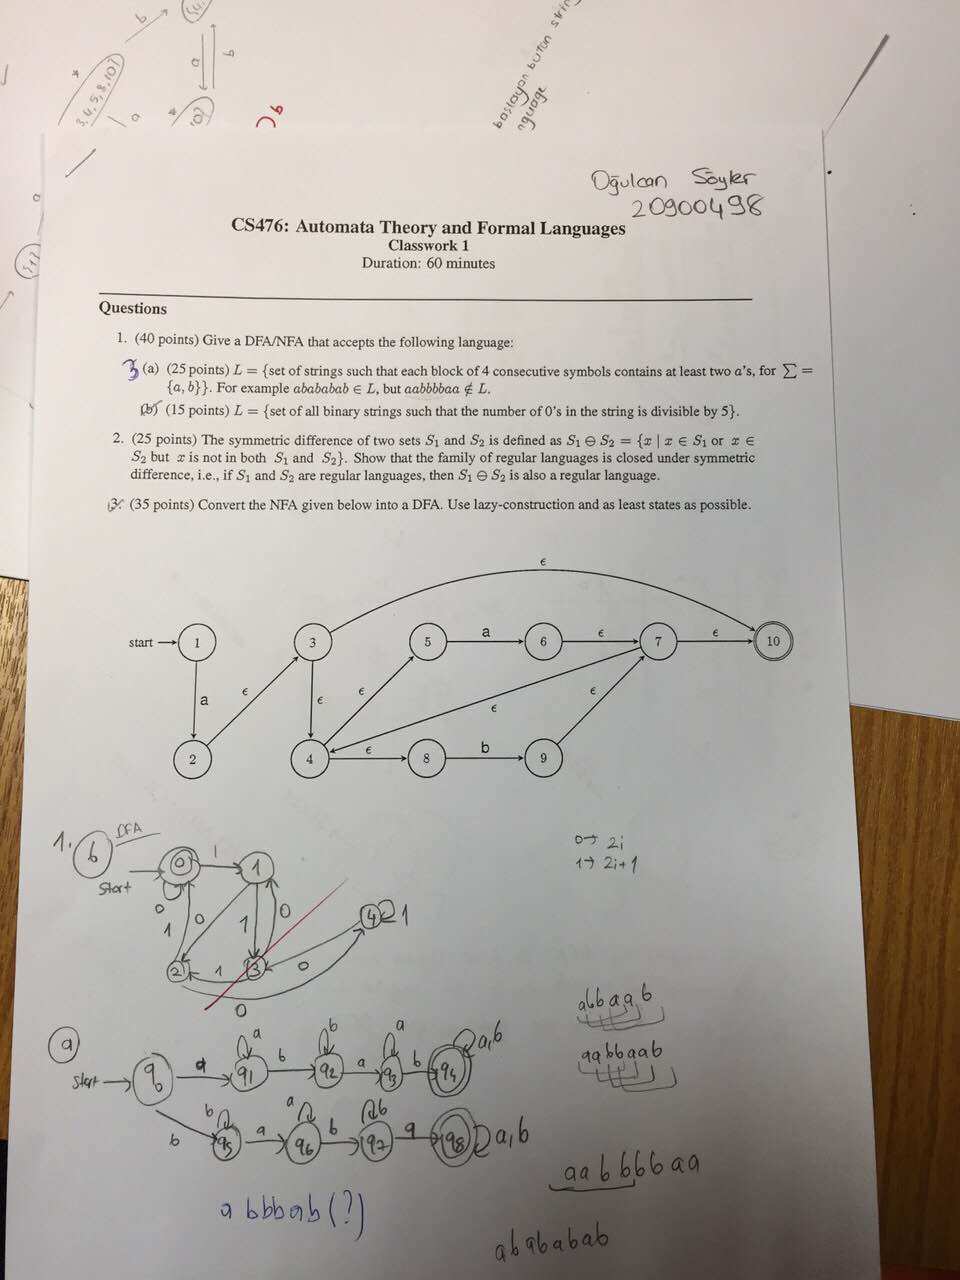 b
a
b
3,4,5,8,10}
*
a
*
10}
başlayan bütün strin
nguage
Oğulcan Söyler
20900498
CS476: Automata Theory and Formal Languages
Classwork 1
Duration: 60 minutes
Questions
1. (40 points) Give a DFA/NFA that accepts the following language:
3 (a) (25 points) L = {set of strings such that each block of 4 consecutive symbols contains at least two a's, for ∑ =
{a, b}}. For example abababab ∈ L, but aabbbbaa ∉ L.
(b) (15 points) L = {set of all binary strings such that the number of 0's in the string is divisible by 5}.
2. (25 points) The symmetric difference of two sets S1 and S2 is defined as S1 ⊖ S2 = {x | x ∈ S1 or x ∈
S2 but x is not in both S1 and S2}. Show that the family of regular languages is closed under symmetric
difference, i.e., if S1 and S2 are regular languages, then S1 ⊖ S2 is also a regular language.
3. (35 points) Convert the NFA given below into a DFA. Use lazy-construction and as least states as possible.
ϵ
start 1 3 5 a 6 ϵ 7 ϵ 10
a ϵ ϵ ϵ ϵ ϵ
2 4 ϵ 8 b 9
1. b DFA
Start 0 1 1
0 1 0 1 0
2 1 3 0 4 1
0
0→ 2i
1→ 2i+1
a
a b a a,b
Start q0 a q1 b q2 a q3 b q4
b a b
b q5 a q6 b q7 a q8 a,b
abbaab
aabbaab
aabbbbaa
abbbab(?)
abababab